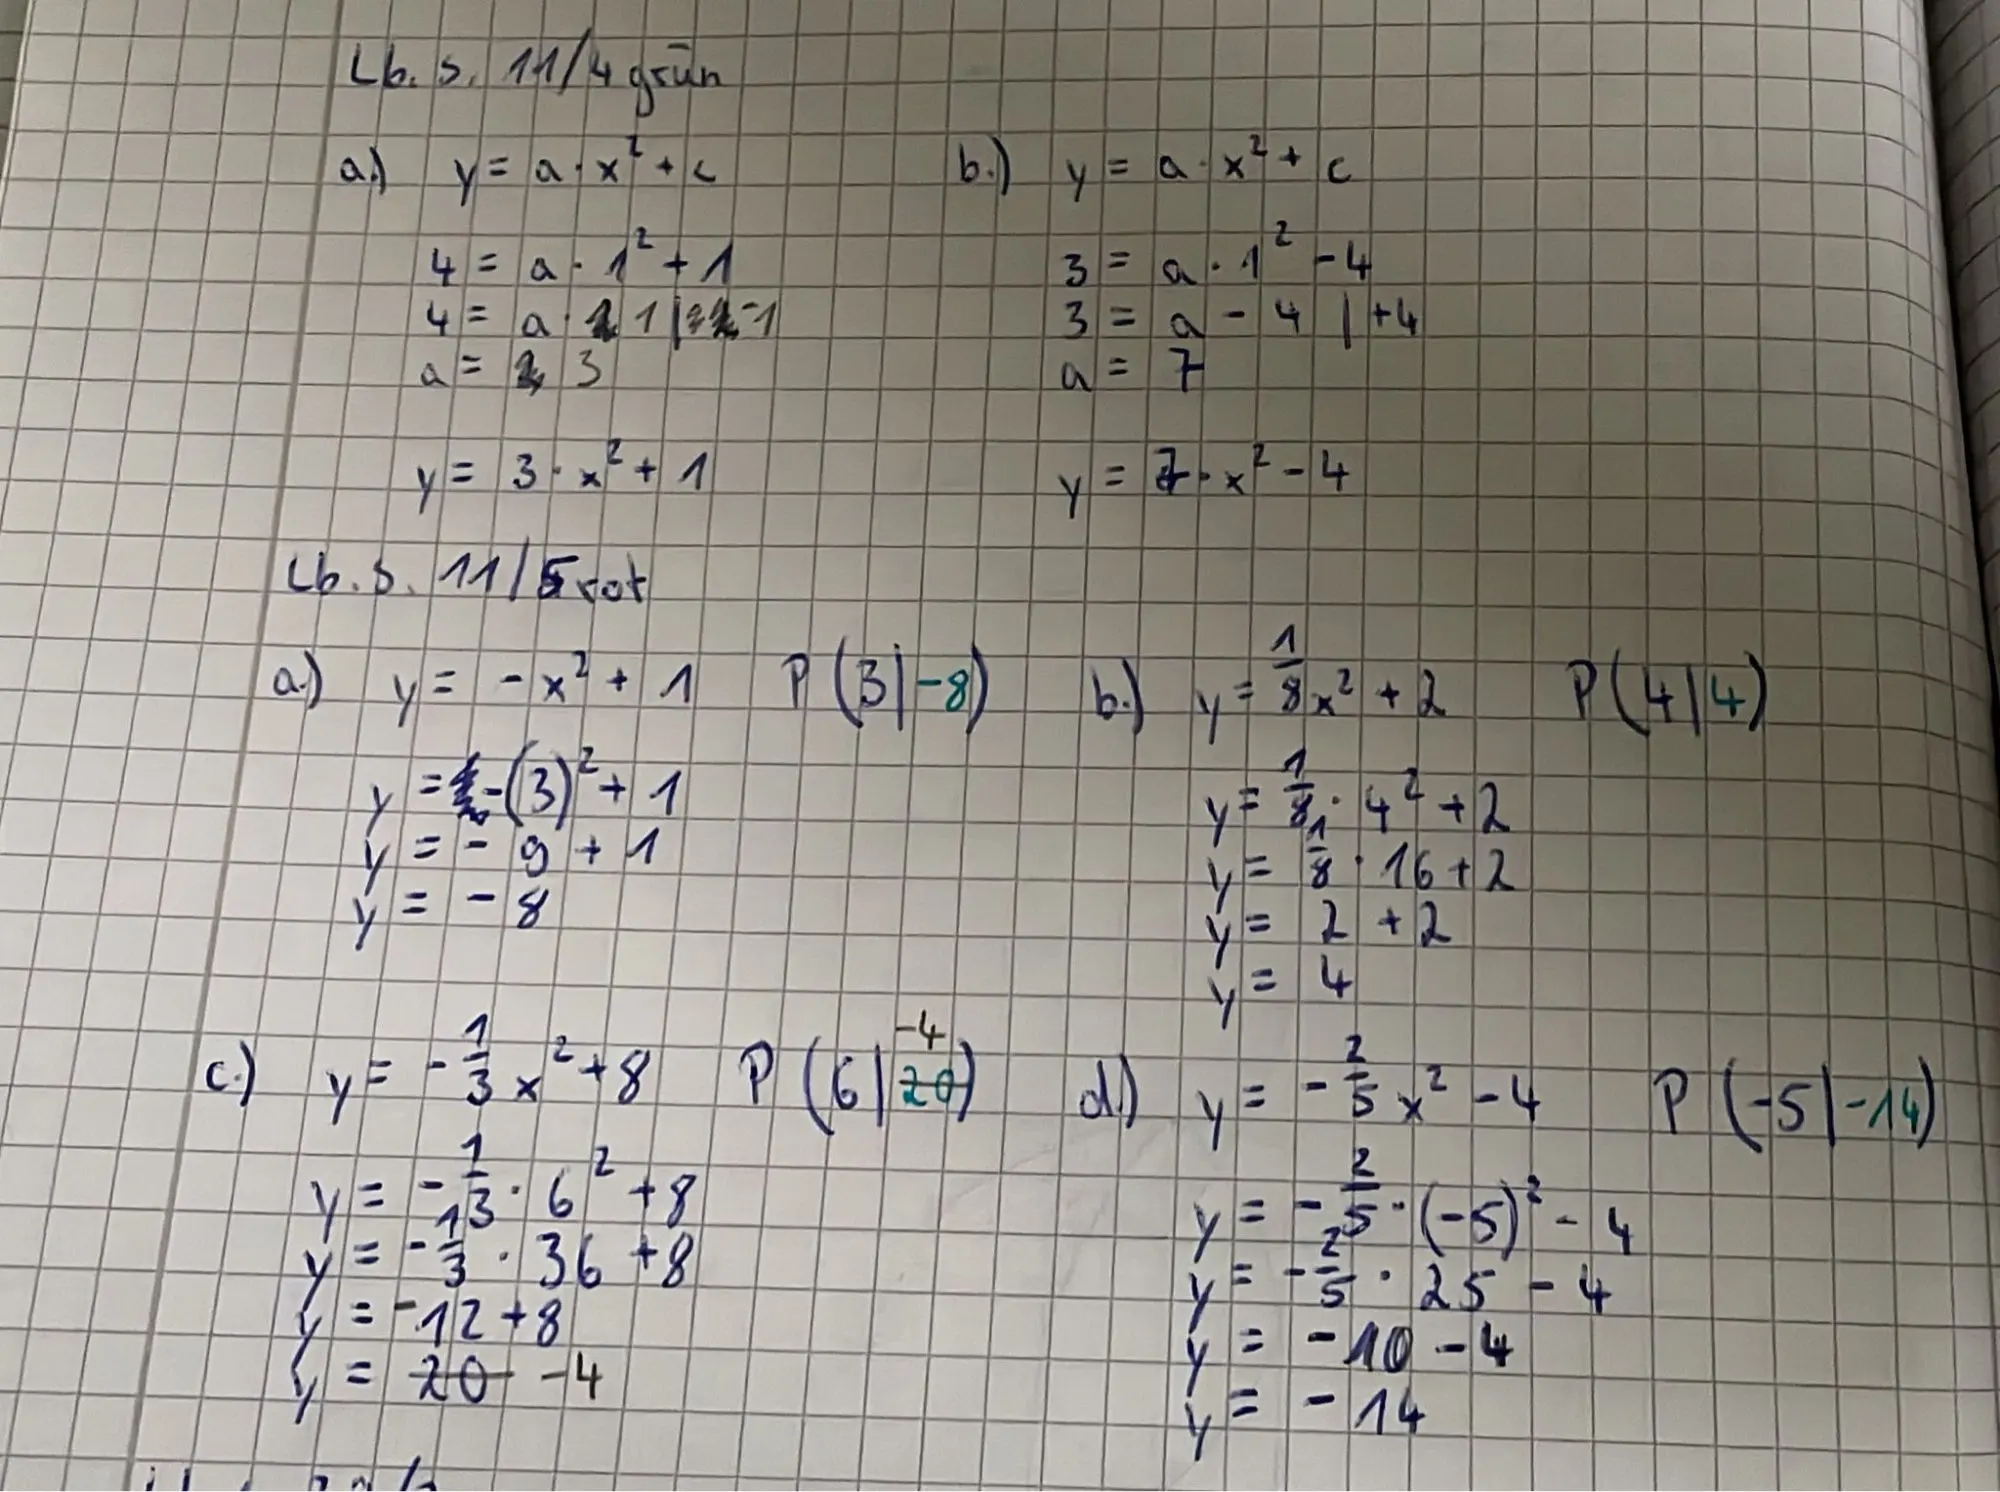 Lb. S. 11/4 grün
a.) y = a · x² + c
4 = a · 1² + 1
4 = a · 1 | -1
a = 3
y = 3 · x² + 1
b.) y = a · x² + c
3 = a · 1² - 4
3 = a - 4 | +4
a = 7
y = 7 · x² - 4
Lb. S. 11/5 rot
a.) y = - x² + 1 P (3|-8)
y = -(3)² + 1
y = - 9 + 1
y = - 8
b.) y = 1/8 x² + 2 P (4|4)
y = 1/8 · 4² + 2
y = 1/8 · 16 + 2
y = 2 + 2
y = 4
c.) y = - 1/3 x² + 8 P (6| 20 -4)
y = - 1/3 · 6² + 8
y = - 1/3 · 36 + 8
y = -12 + 8
y = 20 -4
d.) y = - 2/5 x² - 4 P (-5|-14)
y = - 2/5 · (-5)² - 4
y = - 2/5 · 25 - 4
y = - 10 - 4
y = - 14